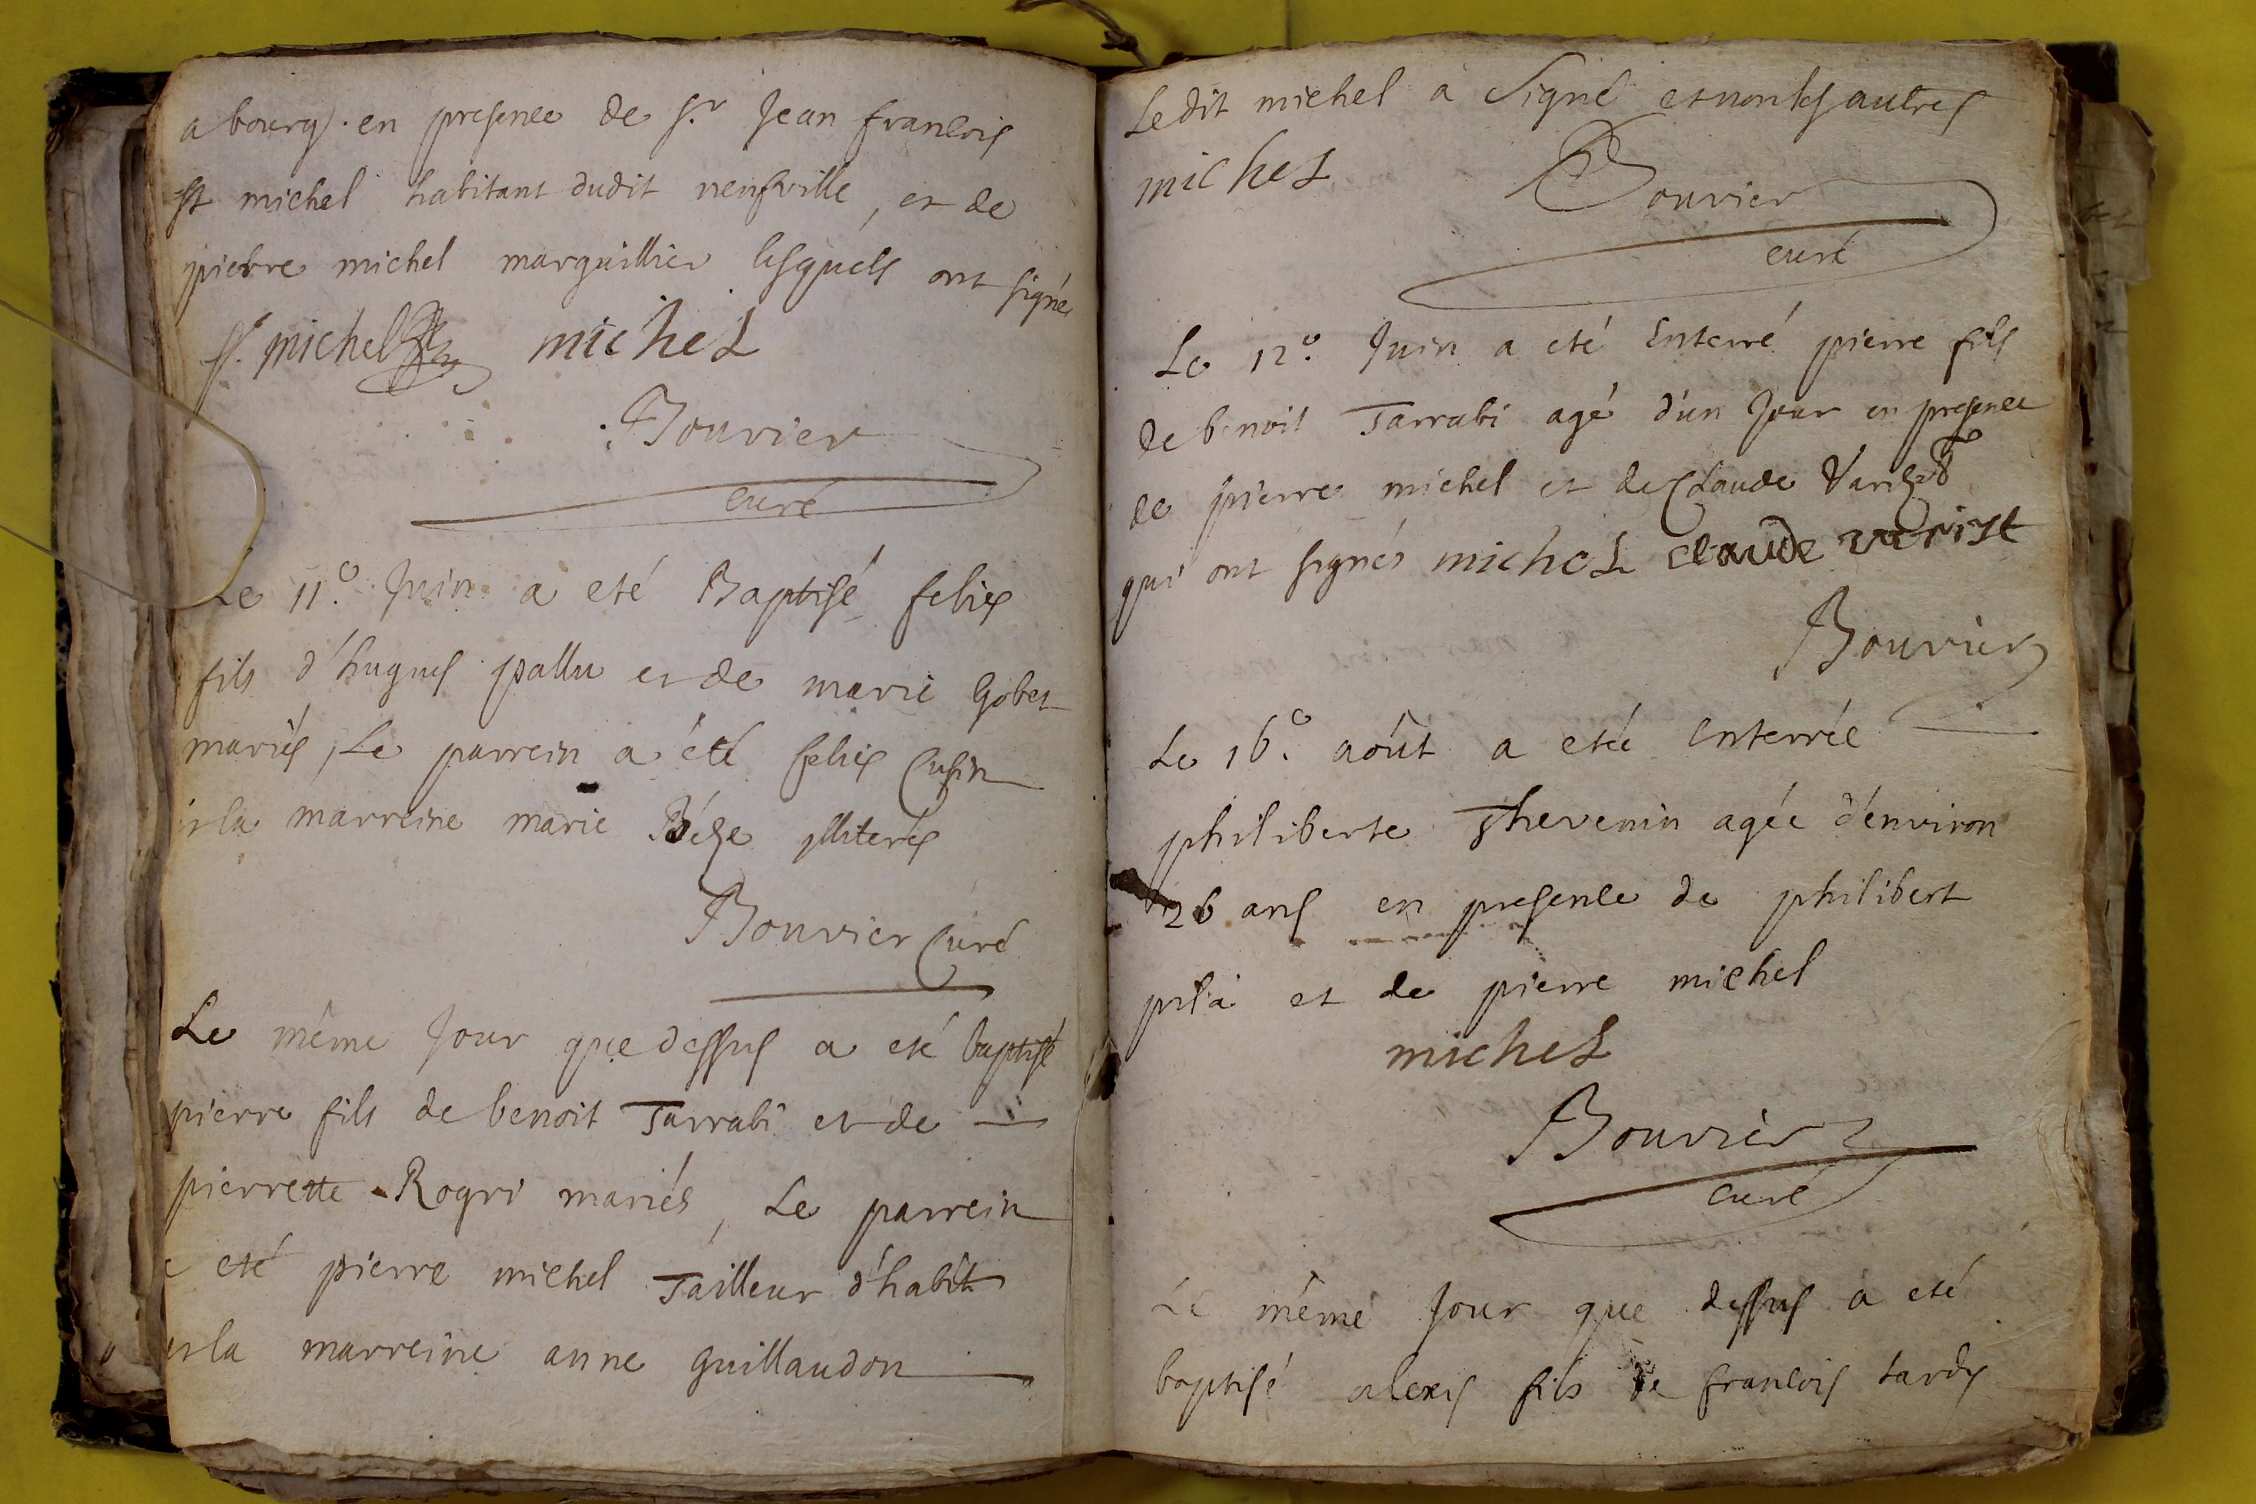 a bourg. en presence de sr. Jean francois
st michel habitant dudit neufville, et de
pierre michel marguillier lesquels ont signés
st. michel michel
Bouvier
curé
Le 11e. Juin a eté Baptisé felix
fils d'hugues pallu et de marie Gobet
mariés, Le parrein a été felix Cusin
et la marreine marie Béze illiterés
Bouvier Curé
Le même Jour que dessus a eté baptisé
pierre fils de benoit Tarrabi et de
pierrette Rogri mariés, Le parrein
eté pierre michel Tailleur d'habit
et la marreine anne guillaudon
Ledit michel a Signé et non les autres
michel Bouvier
curé
Le 12e. Juin a eté Enterré pierre fils
de benoit Tarrabi agé d'un Jour en presence
de pierre michel et de Claude
qui ont signés michel claude varist
Bouvier
Le 16e. août a eteé Enterrée
philiberte Thevenin agée d'environ
26 ans en presence de philibert
pila et de pierre michel
michel
Bouvier
curé
Le même Jour que dessus a eté
baptisé alexis fils de francois tardy